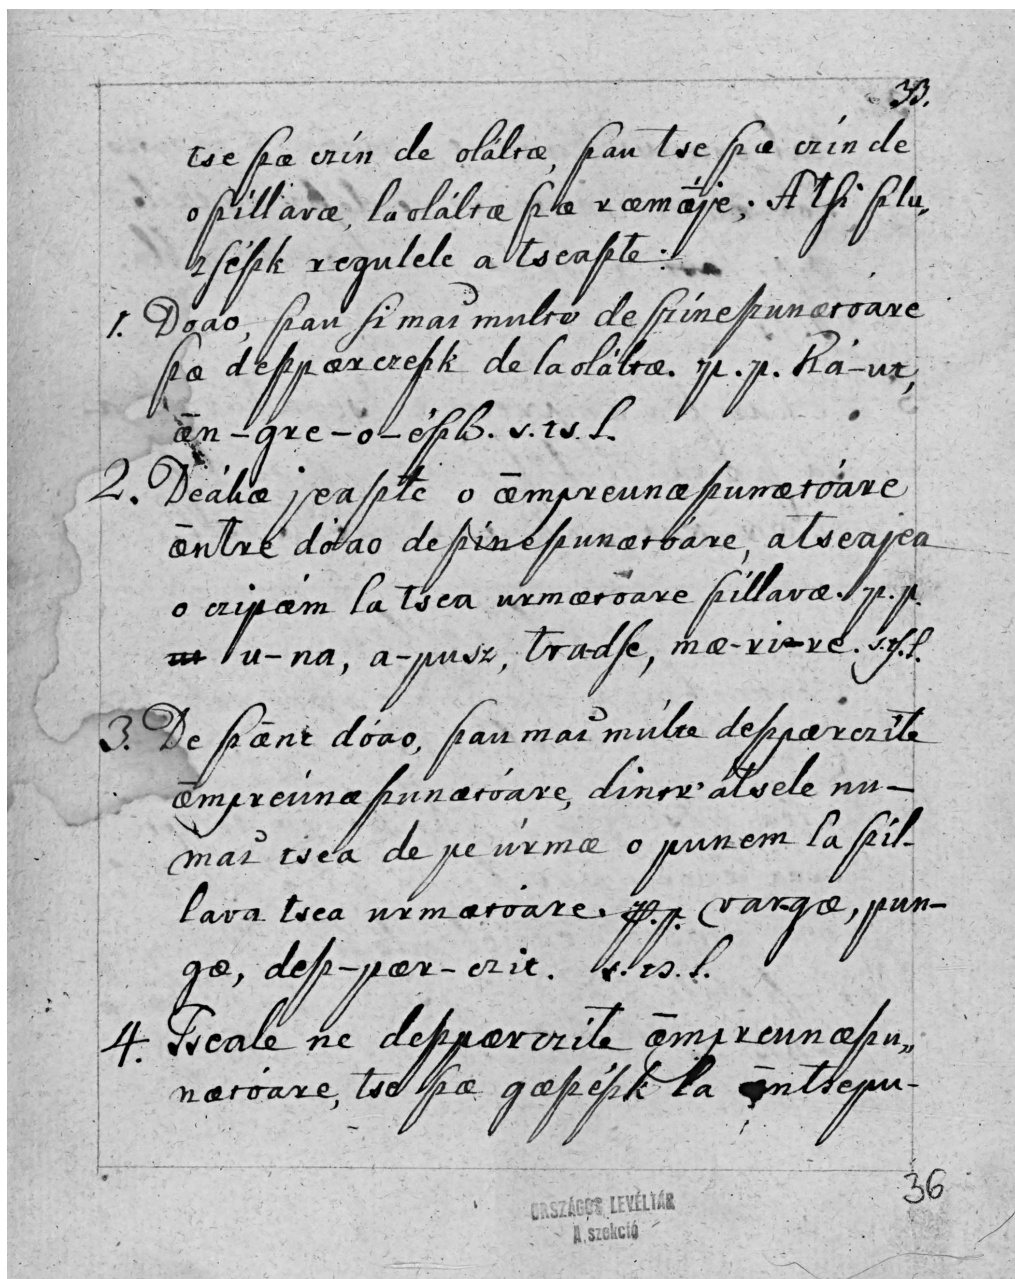 33.
tse þæ czín de oláltæ, þau tse þæ czín de
o þíllavæ, la oláltæ þæ ræmǣje; Atſi þlu„
zſéþk regulele atseaþte:
1. Doao, þau ſi mai multe de þíneþunætoare
þæ deþpærczeþk de la oláltæ. p. p. Ká-ut,
ǣn-gre-o-éþk. s. ts. l.
2. Deákæ jeaþte o ǣmpreunæþunætóare
ǣntre dóao deþíneþunætóare, atseajea
o czipǽm la tsea urmætoare þíllavæ. p. p.
u-na, a-pusz, tradſe, mæ-ri-re. s. tſ. l.
3. De þǣnt dóao, þau mai múlte deþpærczíte
ǣmpreúnæþunætóare, dintr'atsele nu-
mai tsea de pe úrmæ o punem la þíl-
lava tsea urmætóare. p. p. vargæ, pun-
gæ, deþ-pær-czit. s. ts. l.
4. Tseale ne deþpærczíte ǣmpreunæþu„
nætóare, tse þæ gæþéþk la ǣntsepu-
36
ORSZÁGOS LEVÉLTÁR
A szekció